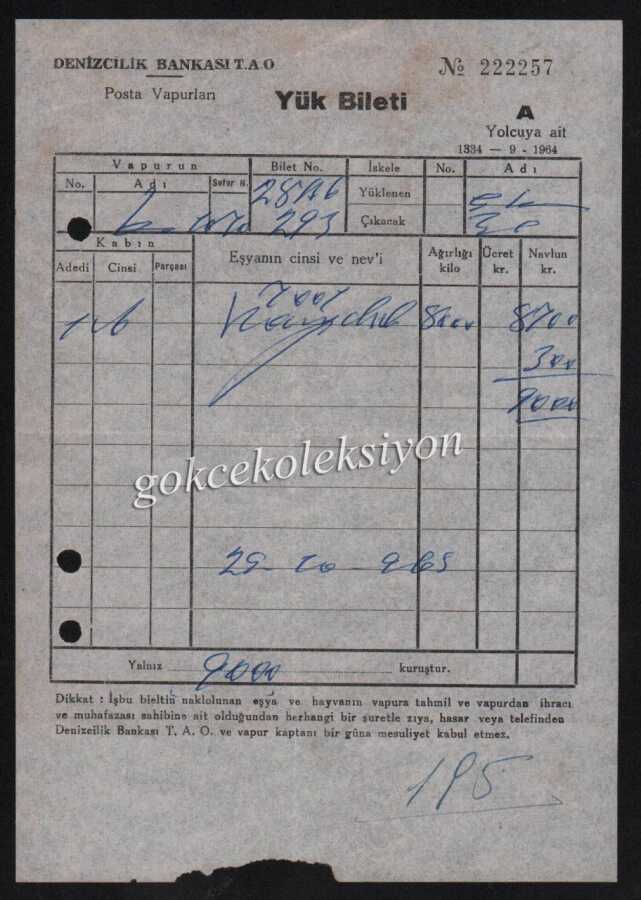 DENİZCİLİK BANKASI T.A.O.
№ 222257
Posta Vapurları
Yük Bileti
A
Yolcuya ait
1334 — 9 - 1964
Vapurun
Bilet No.
İskele
No.
Adı
No.
Adı
Sefer N.
Yüklenen
293
Çıkacak
Kabin
Eşyanın cinsi ve nev'i
Ağırlığı kilo
Ücret kr.
Navlun kr.
Adedi
Cinsi
Parçası
8000
8700
300
9000
gokcekoleksiyon
Yalnız 9000 kuruştur.
Dikkat : İşbu bieltin naklolunan eşya ve hayvanın vapura tahmil ve vapurdan ihracı
ve muhafazası sahibine ait olduğundan herhangi bir suretle ziya, hasar veya telefinden
Denizcilik Bankası T. A. O. ve vapur kaptanı bir güna mesuliyet kabul etmez.
195